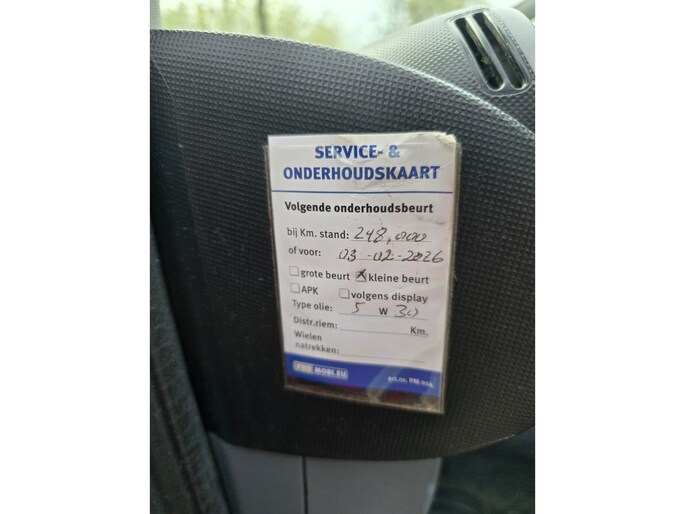 SERVICE- &
ONDERHOUDSKAART
Volgende onderhoudsbeurt
bij Km. stand: 248,000
of voor: 03-02-2026
grote beurt kleine beurt
APK volgens display
Type olie: 5 W 30
Distr.riem: Km.
Wielen
natrekken:
MOBI.EU art.nr. PM 014